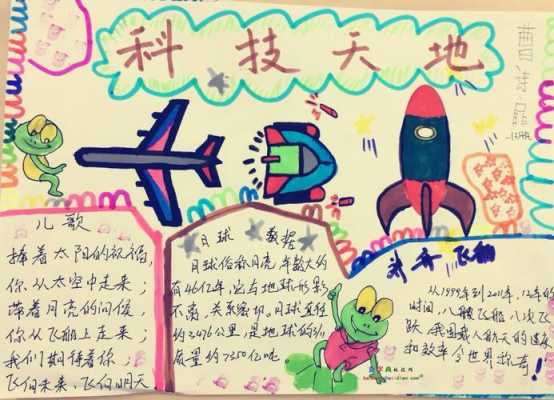 科技天地
儿歌
捧着太阳的祝福，
你从太空中走来；
带着月亮的问候，
你从飞船上走来；
我们期待着你；
飞向未来、飞向明天
月球 数据
月球俗称月亮，年龄大约
有46亿年，它与地球形影
不离，关系密切，月球直径
约3476公里，是地球的3/11
质量约7350亿吨
神舟飞船
从1999年到2011年，12年的
时间，八艘飞船，八次飞
跃，我国载人航天的速度
和效率令世界称奇！